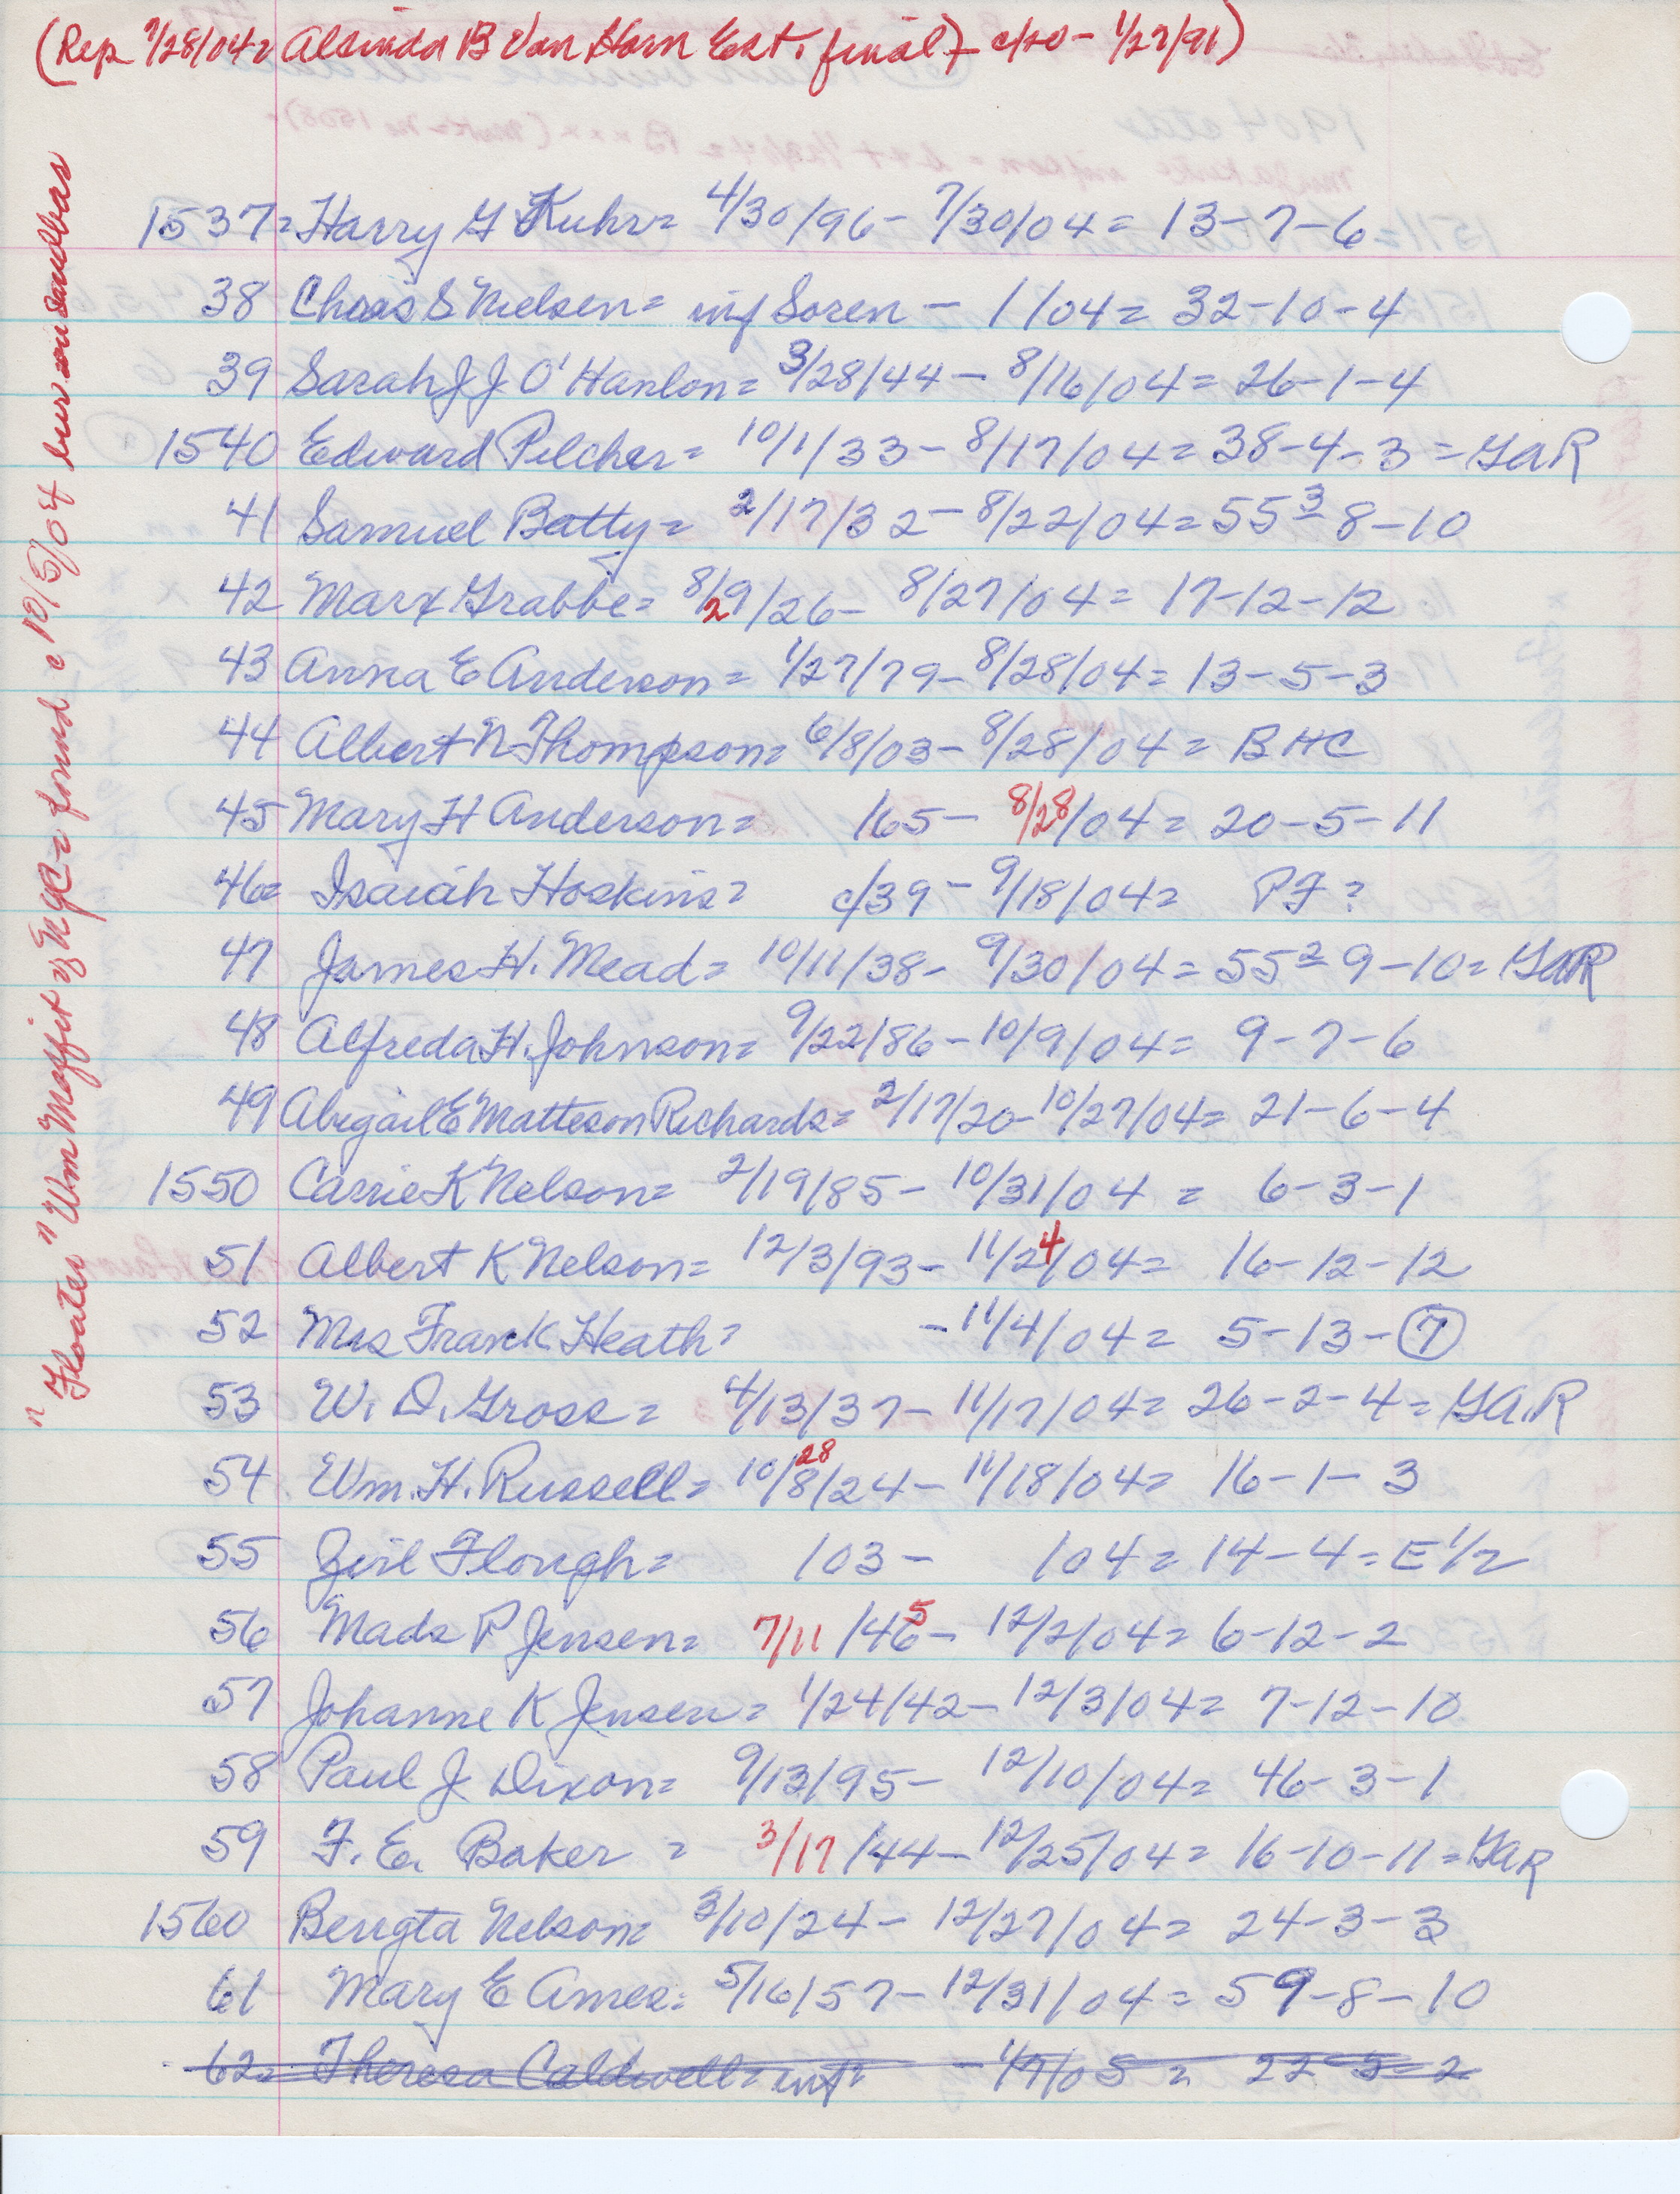 (Rep 7/28/04= Alsinda B Van Horn Est. final)- c/20 - 1/27/91)
"Floater" Wm Moffit of NYC = found c 10/5/04 bur on sandbar
1537= Harry G Kuhr= 4/30/96- 7/30/04= 13-7-6
38 Chras S Nielsen= inf Soren - 1 /04= 32-10-4
39 Sarah J J O'Hanlon= 3/28/44- 8/16/04= 26-1-4
1540 Edward Pilcher= 10/1/33- 8/17/04= 38-4-3 =GAR
41 Samuel Batty= 2/17/32- 8/22/04= 55 3- 8-10
42 Marx Grabbe= 8/29/26- 8/27/04= 17-12-12
43 Anna E Anderson= 1/27/79- 8/28/04= 13-5-3
44 Albert N Thompson= 6/8/03- 8/28/04= BHC
45 Mary H Anderson= /65- 8/28/04= 20-5-11
46= Isaiah Hoskins= c/39- 9/18/04= PF?
47 James H. Mead= 10/11/38- 9/30/04= 55 2- 9-10= GAR
48 Alfreda H. Johnson= 9/22/86-10/9/04= 9-7-6
49 Abigail E Matteson Richards= 2/17/20-10/27/04= 21-6-4
1550 Carrie K Nelson= 2/19/85- 10/31/04= 6-3-1
51 Albert K Nelson= 12/3/93- 11/24/04= 16-12-12
52 Mrs Frank Heath= -11/4/04= 5-13-7
53 W. D. Gross= 4/13/37- 11/17/04= 26-2-4=GA.R
54 Wm. H. Russell= 10/8 28/24- 11/18/04= 16-1-3
55 Flough= /03- /04= 14-4= E 1/2
56 Mads P Jensen= 7/11 /46 5- 12/2/04= 6-12-2
57 Johanne K Jensen= 1/24/42- 12/3/04= 7-12-10
58 Paul J Dixon= 9/13/95- 12/10/04= 46-3-1
59 F. E. Baker = 3/17 /44- 12/25/04= 16-10-11=GAR
1560 Bengta Nelson= 3/10/24- 12/27/04= 24-3-3
61 Mary E Ames= 5/16/57- 12/31/04= 59-8-10
62= Theresa Caldwell= inf= - 1/7/05 = 22-5-2